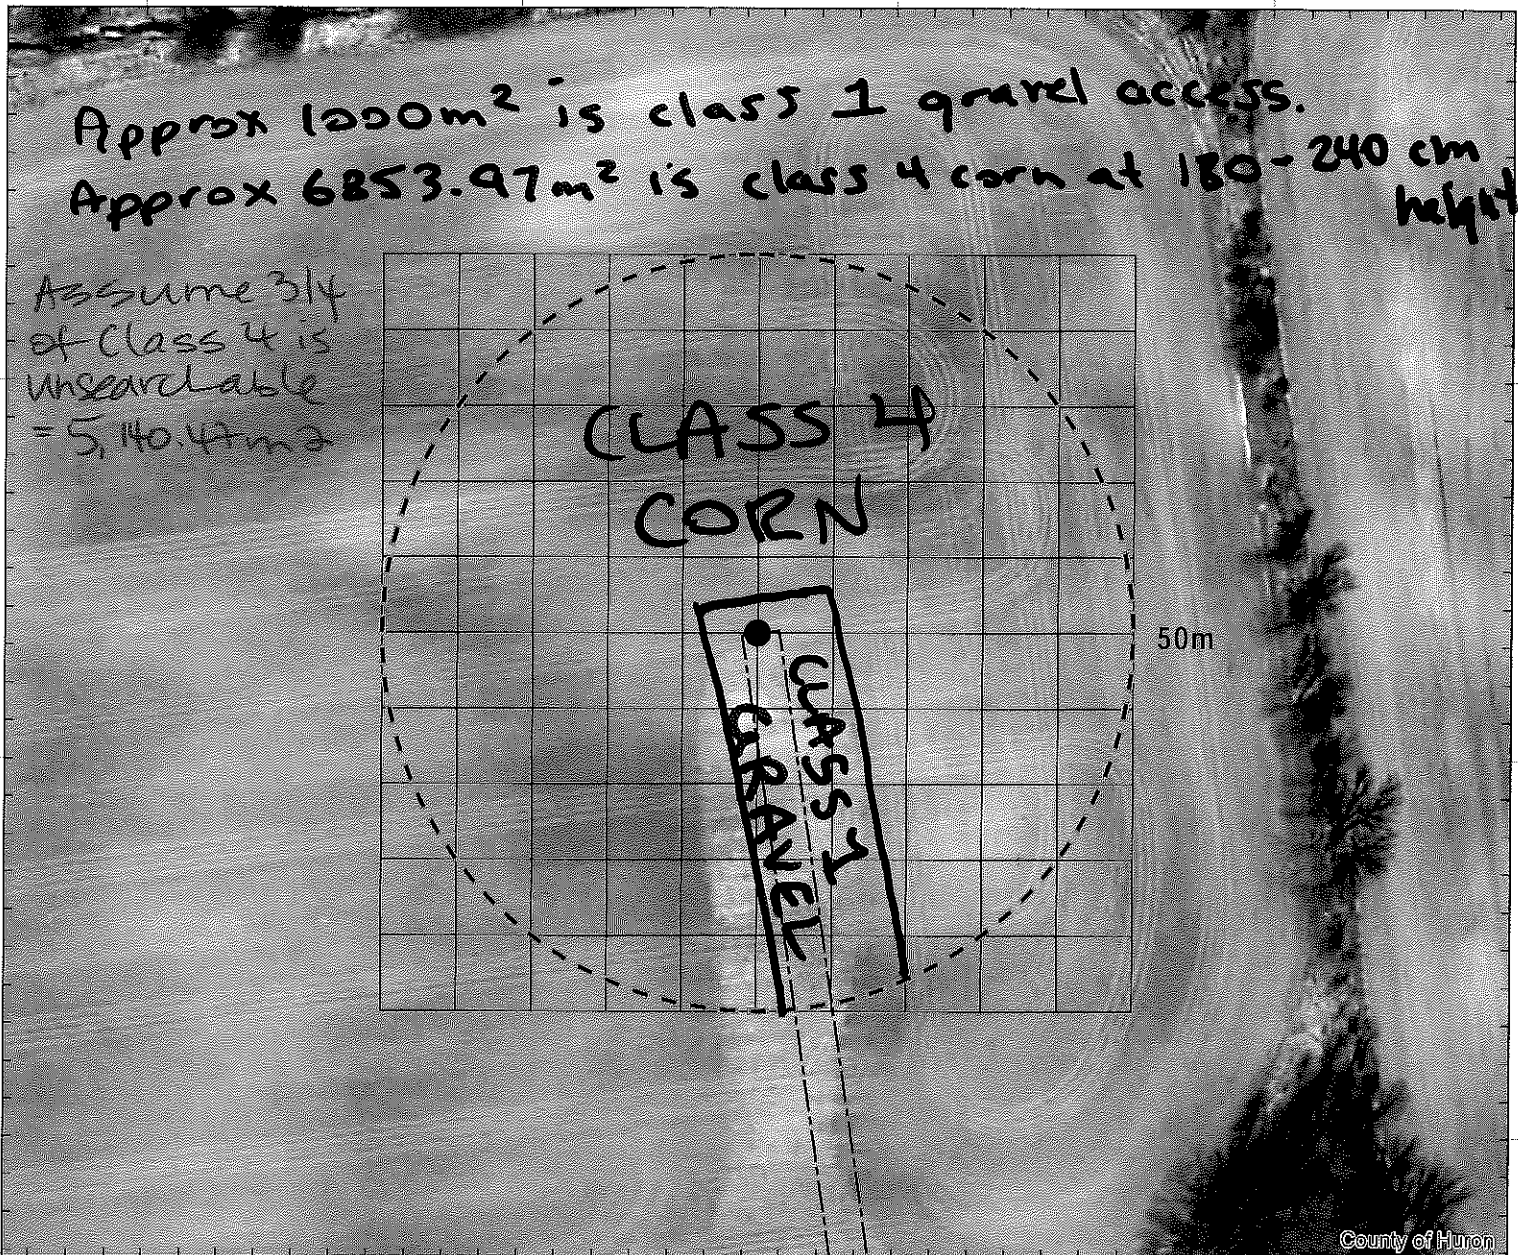 Approx 1000m² is class 1 gravel access.
Approx 6853.97m² is class 4 corn at 180-240 cm
height
Assume 3/4
of Class 4 is
unsearchable
= 5,140.47m2
CLASS 4
CORN
50m
CLASS 1
GRAVEL
County of Huron